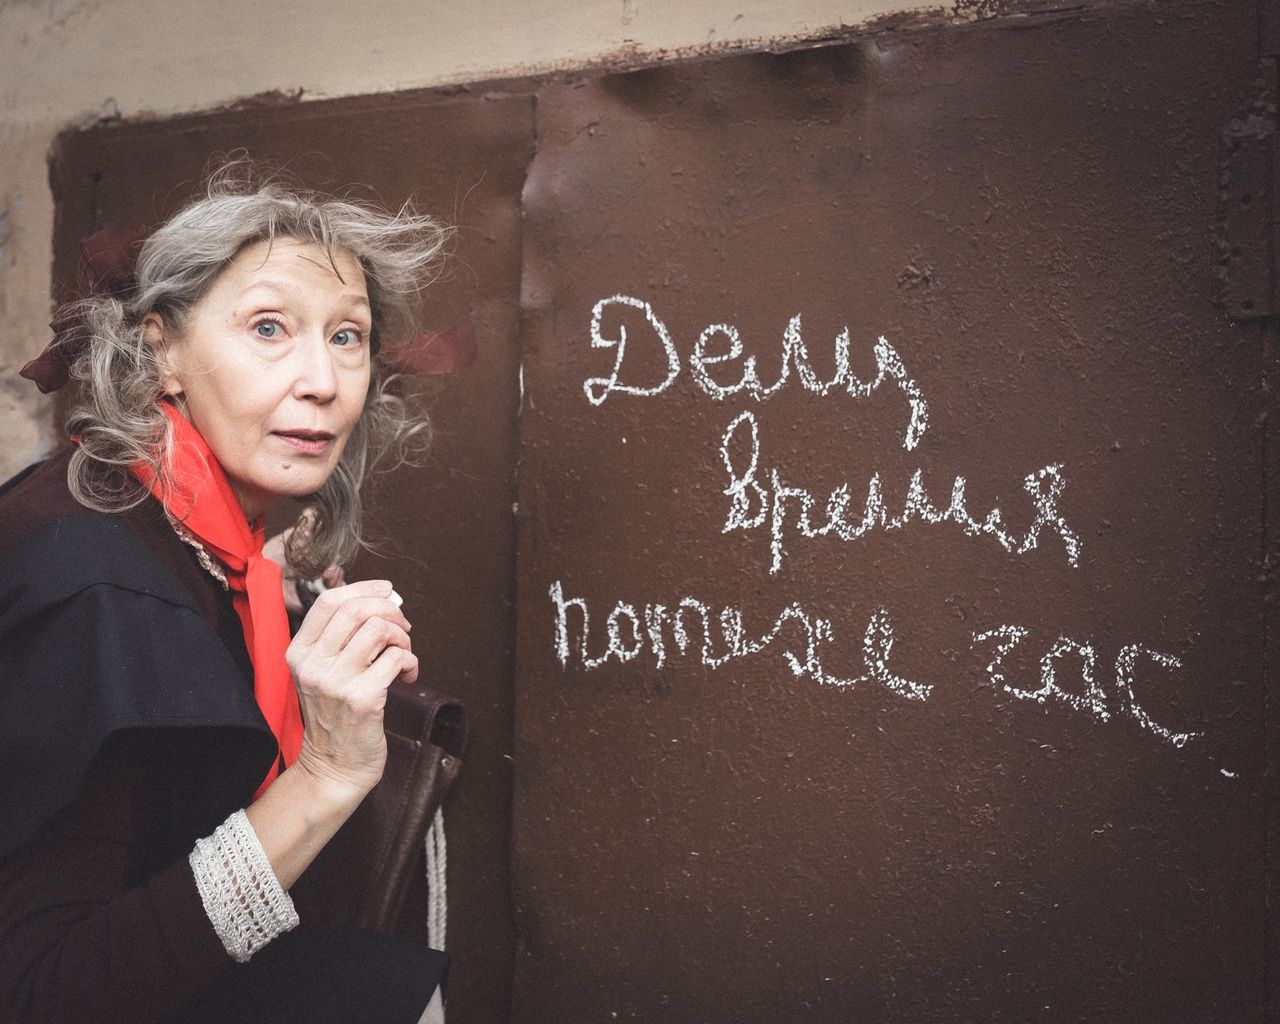 Делу
время
потехе час